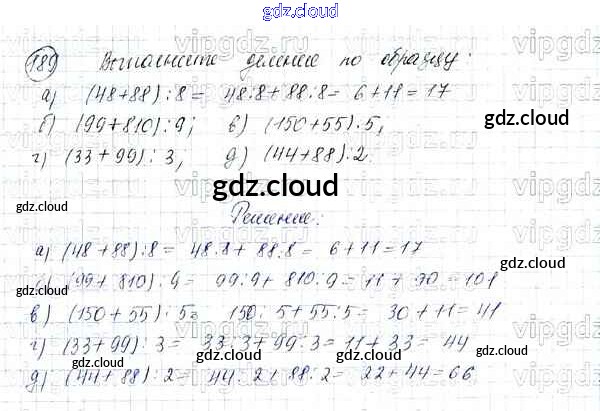 gdz.cloud
gdz.cloud
189 Выполните деление по образцу:
а) (48+88):8= 48:8+88:8= 6+11=17
б) (99+810):9; в) (150+55):5,
gdz.cloud
г) (33+99):3, д) (44+88):2
gdz.cloud
Решение:
а) (48+88):8= 48:8+88:8= 6+11=17
gdz.cloud
б) (99+810):9= 99:9+810:9=11+90=101
gdz.cloud
в) (150+55):5= 150:5+55:5= 30+11=41
г) (33+99):3= 33:3+99:3=11+33=44
gdz.cloud
gdz.cloud
д) (44+88):2= 44:2+88:2= 22+44=66